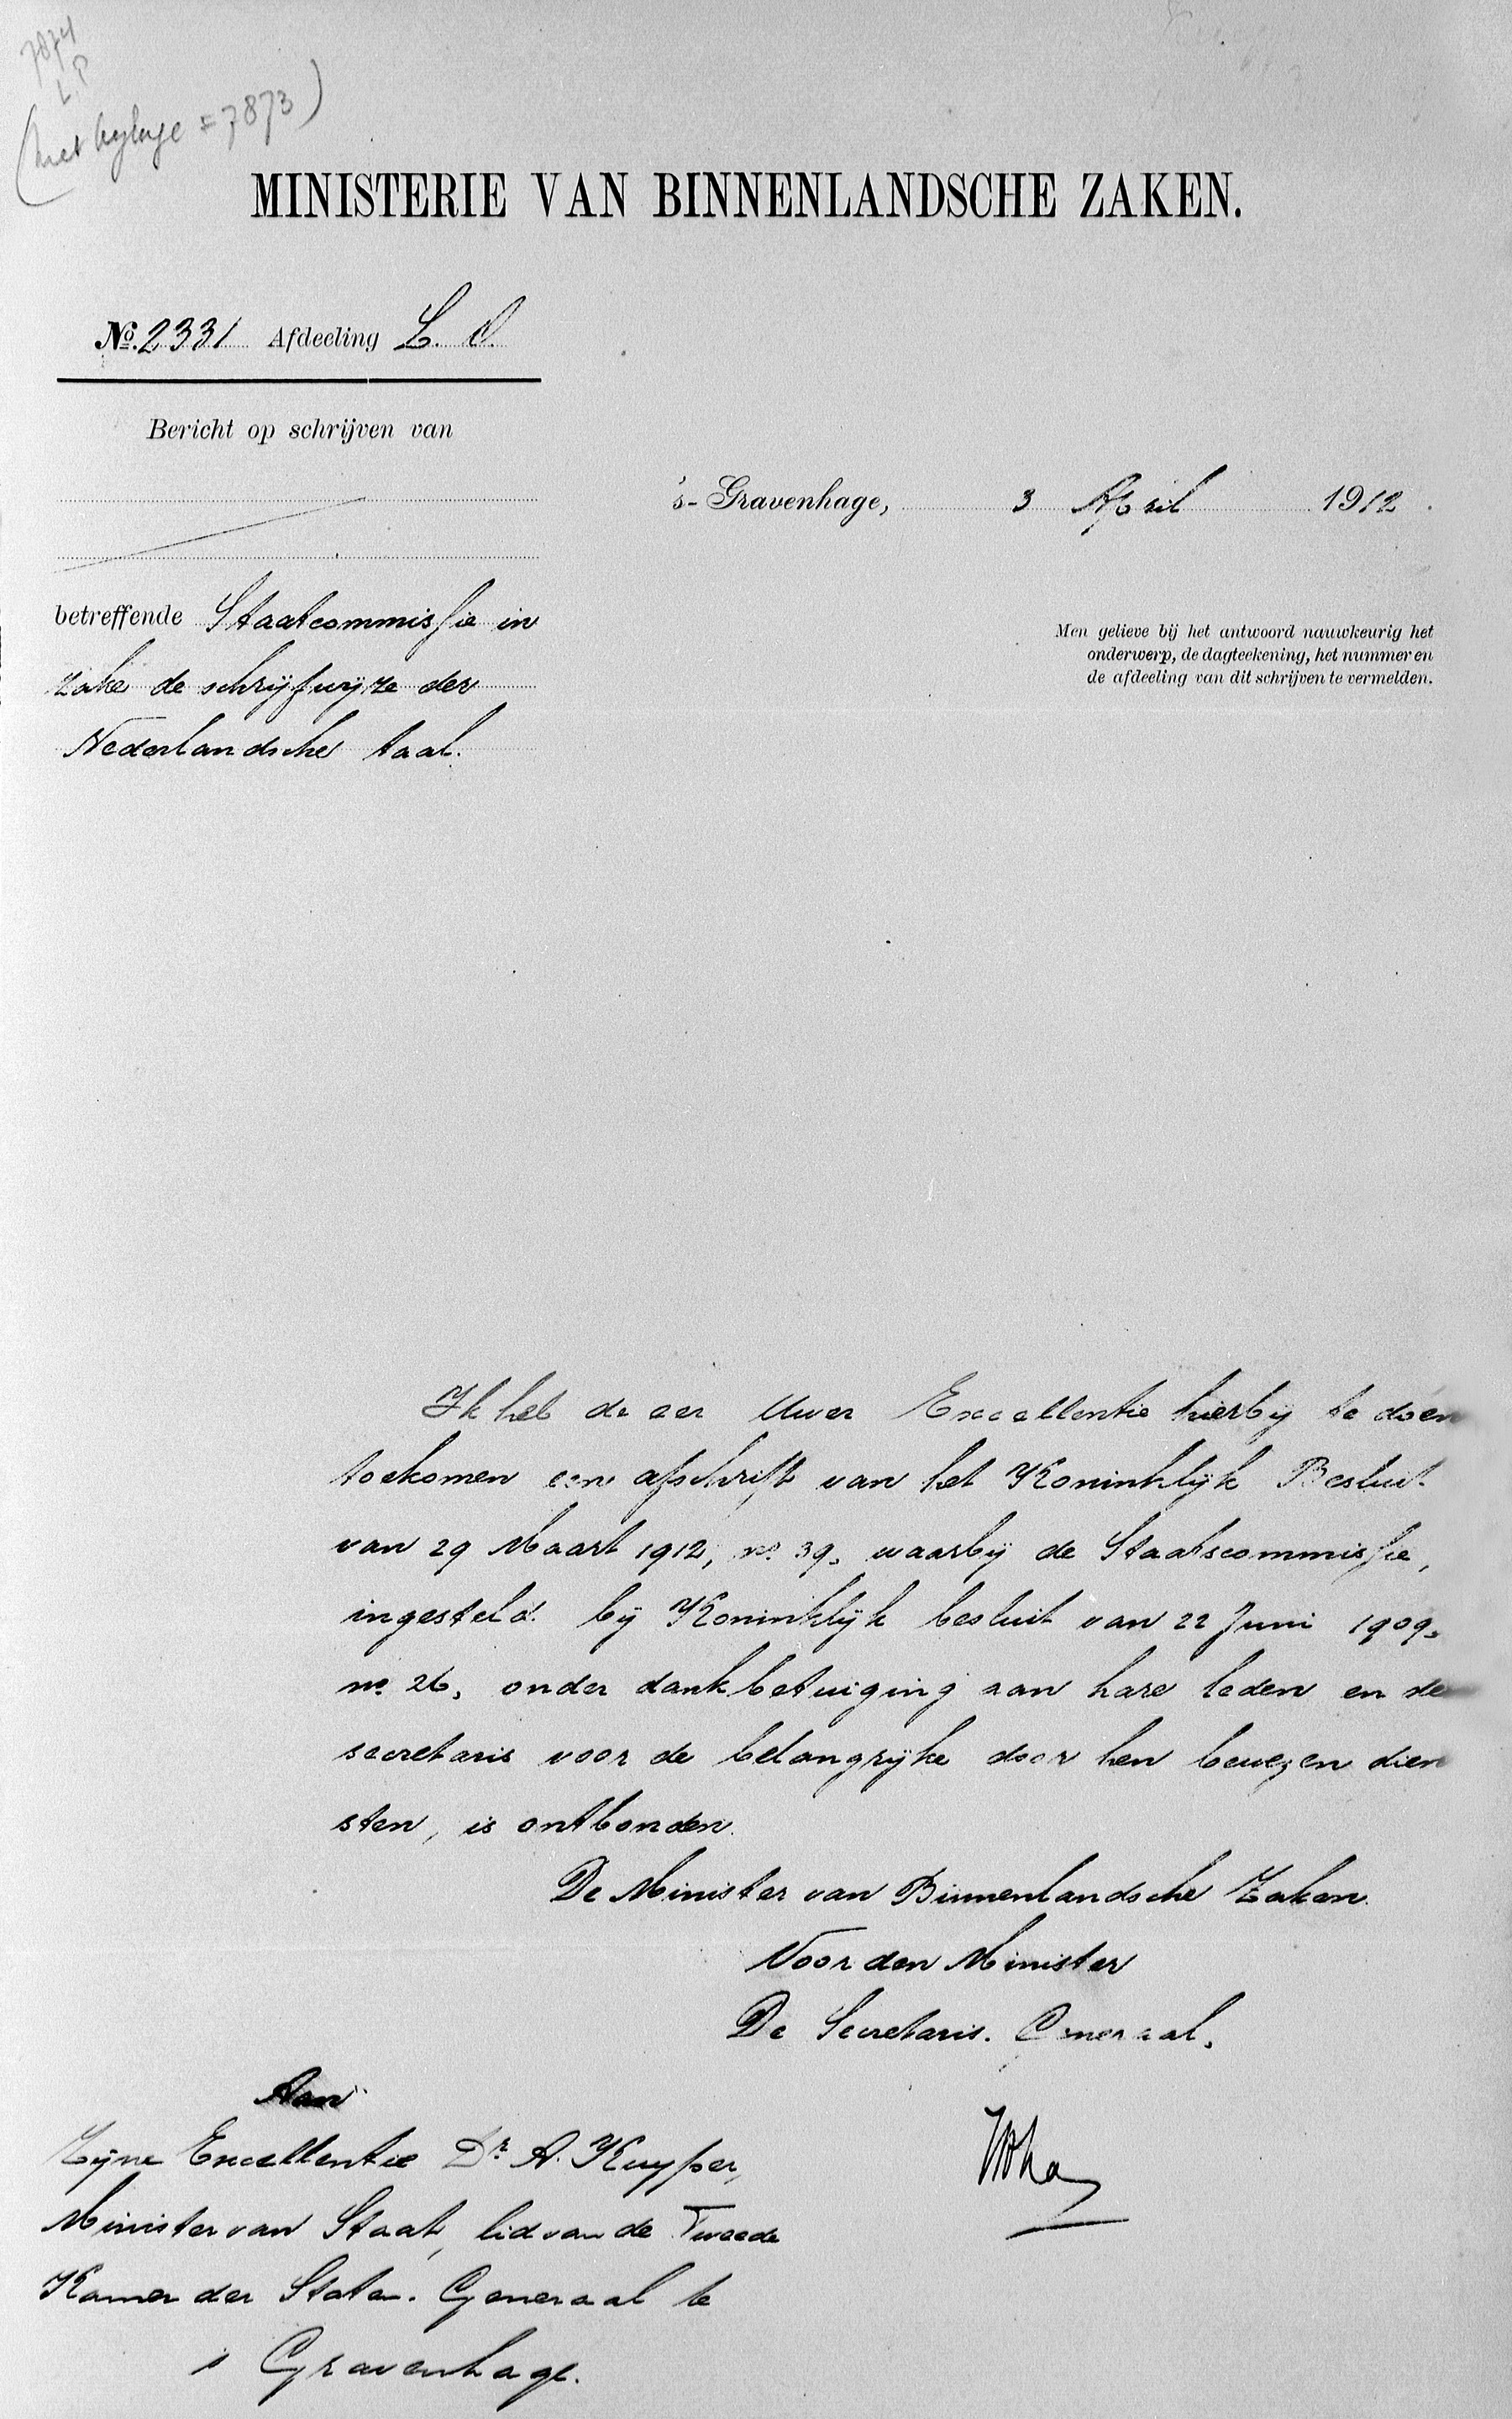 7874
L.P
(met bijlage = 7873)
MINISTERIE VAN BINNENLANDSCHE ZAKEN.
No. 2331 Afdeeling L. O.
Bericht op schrijven van
's-Gravenhage, 3 April 1912.
betreffende Staatcommissie in
zake de schrijfwijze der
Nederlandsche taal.
Men gelieve bij het antwoord nauwkeurig het
onderwerp, de dagteekening, het nummer en
de afdeeling van dit schrijven te vermelden.
Ik heb de eer Uwer Excellentie hierbij te doen
toekomen een afschrift van het Koninklijk Besluit
van 29 Maart 1912, no. 39, waarbij de Staatscommissie,
ingesteld bij Koninklijk besluit van 22 Juni 1909,
no. 26, onder dankbetuiging aan hare leden en de
secretaris voor de belangrijke door hen bewezen dien
sten, is ontbonden.
De Minister van Binnenlandsche Zaken.
Voor den Minister
De Secretaris-Generaal,
Aan
Zijne Excellentie Dr. A. Kuyper,
Minister van Staat, lid van de Tweede
Kamer der Staten-Generaal te
s Gravenhage.